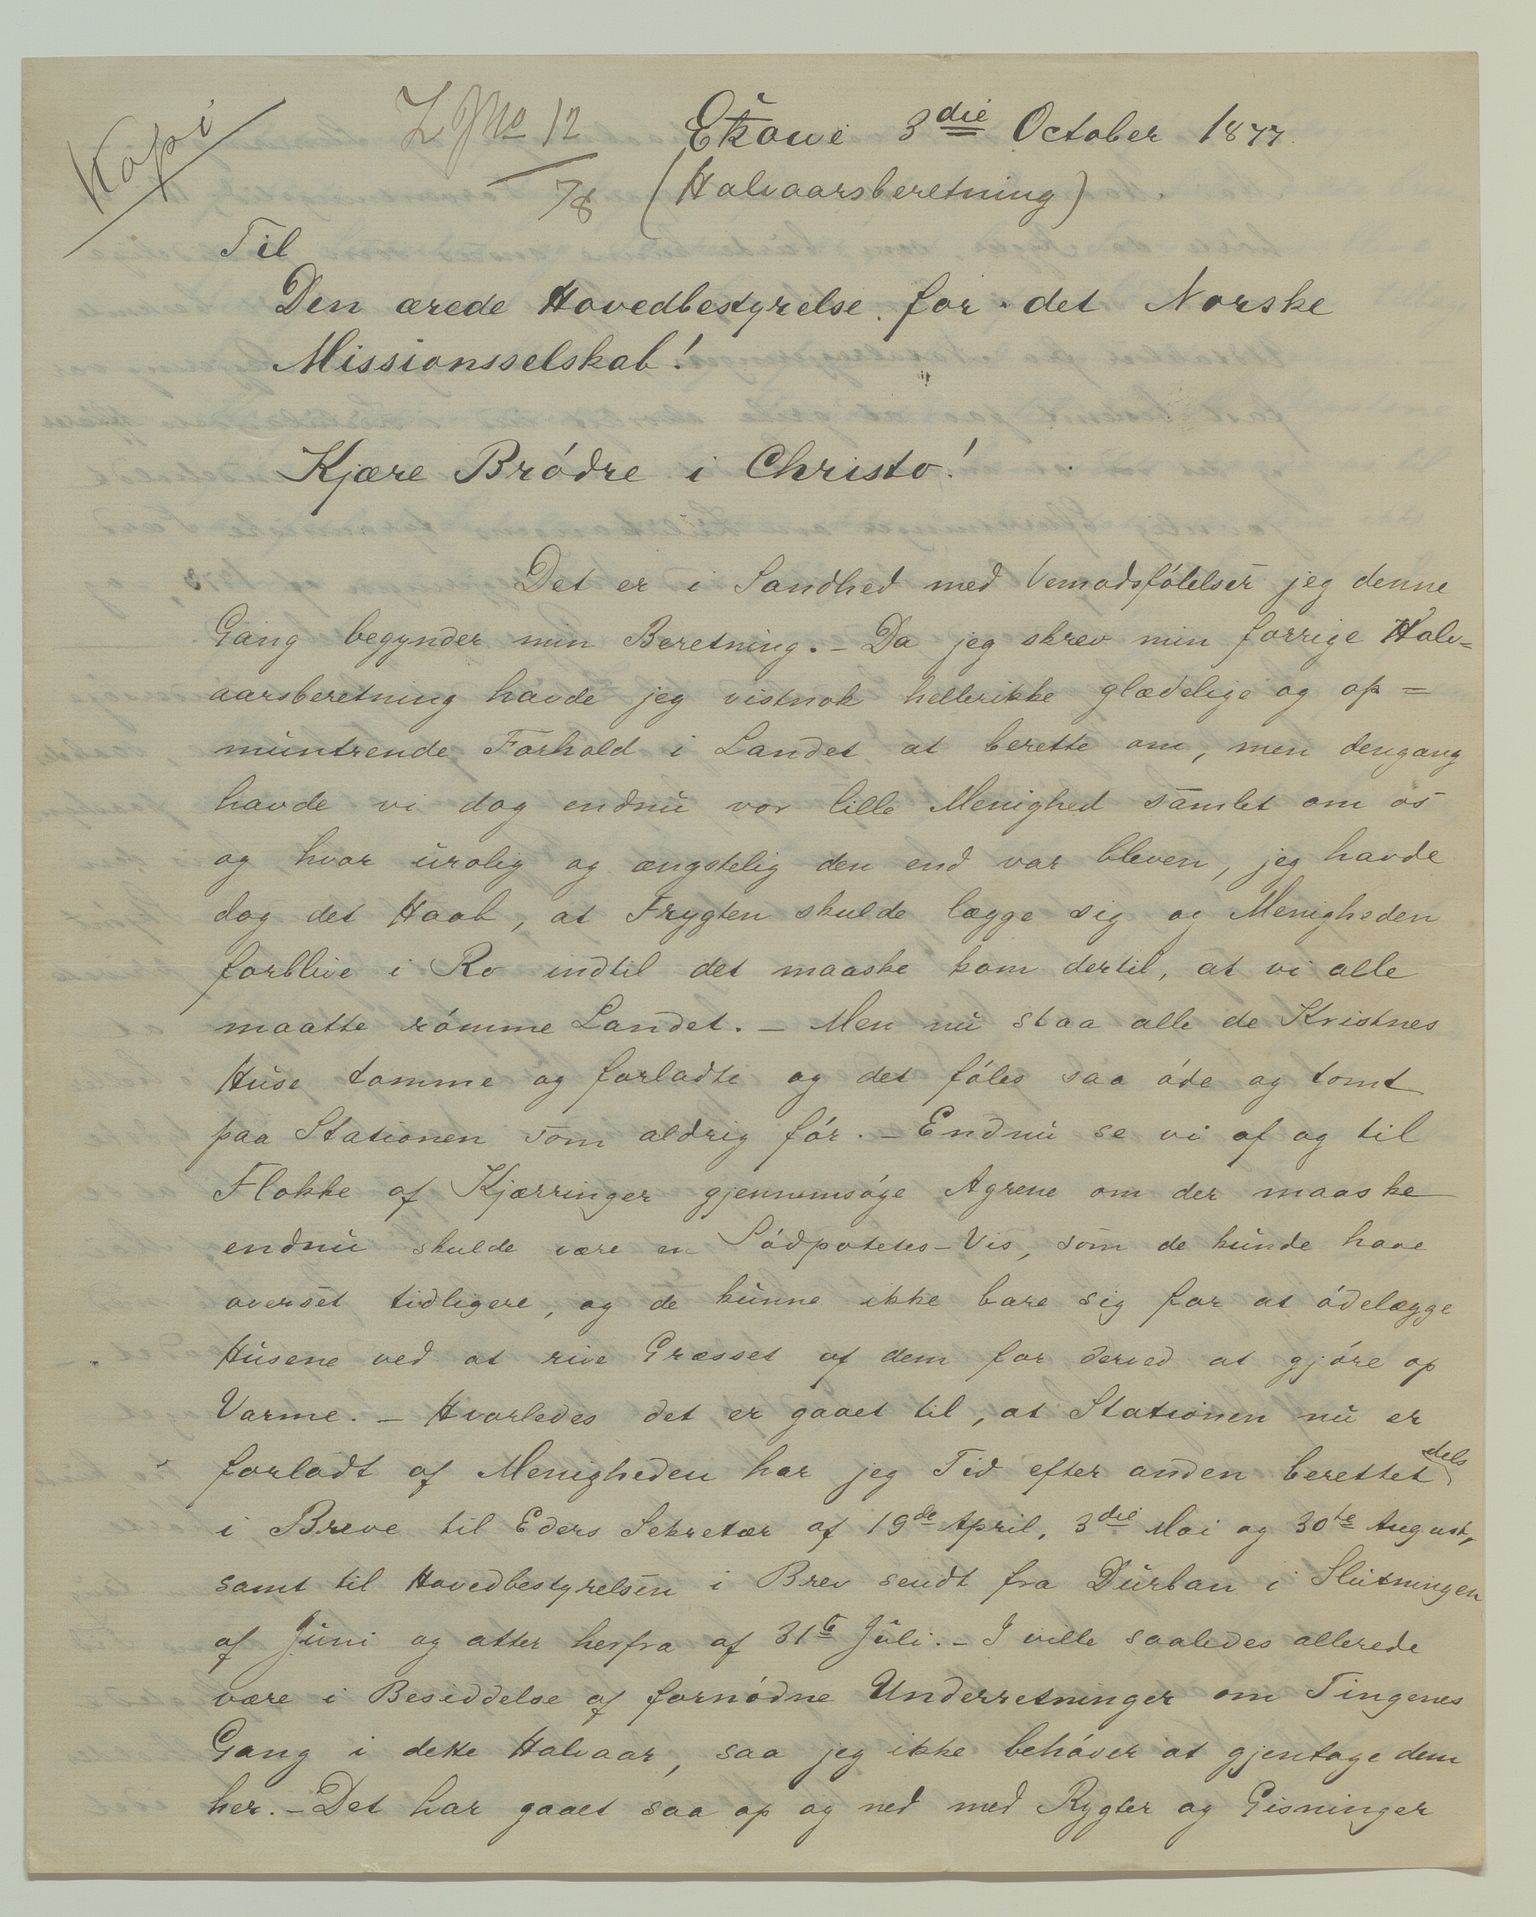 Kopi
Z J No 12
/78
Ekowe 3die October 1877.
(Halvaarsberetning)
Til
Den ærede Hovedbestyrelse for det Norske
Missionsselskab!
Kjære Brödre i Christo!
Det er i Sandhed med Vemodsfölelser jeg denne
Gang begynder min Beretning. – Da jeg skrev min forrige Halv=
aarsberetning havde jeg vistnok hellerikke glædelige og op=
muntrende Forhold i Landet at berette om, men dengang
havde vi dog endnu vor lille Menighed samlet om os
og hvor urolig og ængstelig den end var bleven, jeg havde
dog det Haab, at Frygten skulde lægge sig og Menigheden
forblive i Ro indtil det maaske kom dertil, at vi alle
maatte römme Landet. – Men nu staa alle de Kristnes
Huse tomme og forladte og det föles saa öde og tomt
paa Stationen som aldrig för. – Endnu se vi af og til
Flokke af Kjærringer gjennemsöge Agrene om der maaske
endnu skulde være en Södpotetes-Vis, som de kunde have
overset tidligere, og de kunne ikke bare sig for at ödelægge
Husene ved at rive Græsset af dem for derved at gjöre op
Varme. – Hvorledes det er gaaet til, at Stationen nu er
forladt af Menigheden har jeg Tid efter anden berettet dels
i Breve til Eders Sekretær af 19de April, 3die Mai og 30te August,
samt til Hovedbestyrelsen i Brev sendt fra Durban i Slutningen
af Juni og atter herfra af 31te Juli. – I ville saaledes allerede
være i Besiddelse af fornödne Underretninger om Tingenes
Gang i dette Halvaar, saa jeg ikke behöver at gjentage dem
her. – Det har gaaet saa op og ned med Rygter og Gisninger